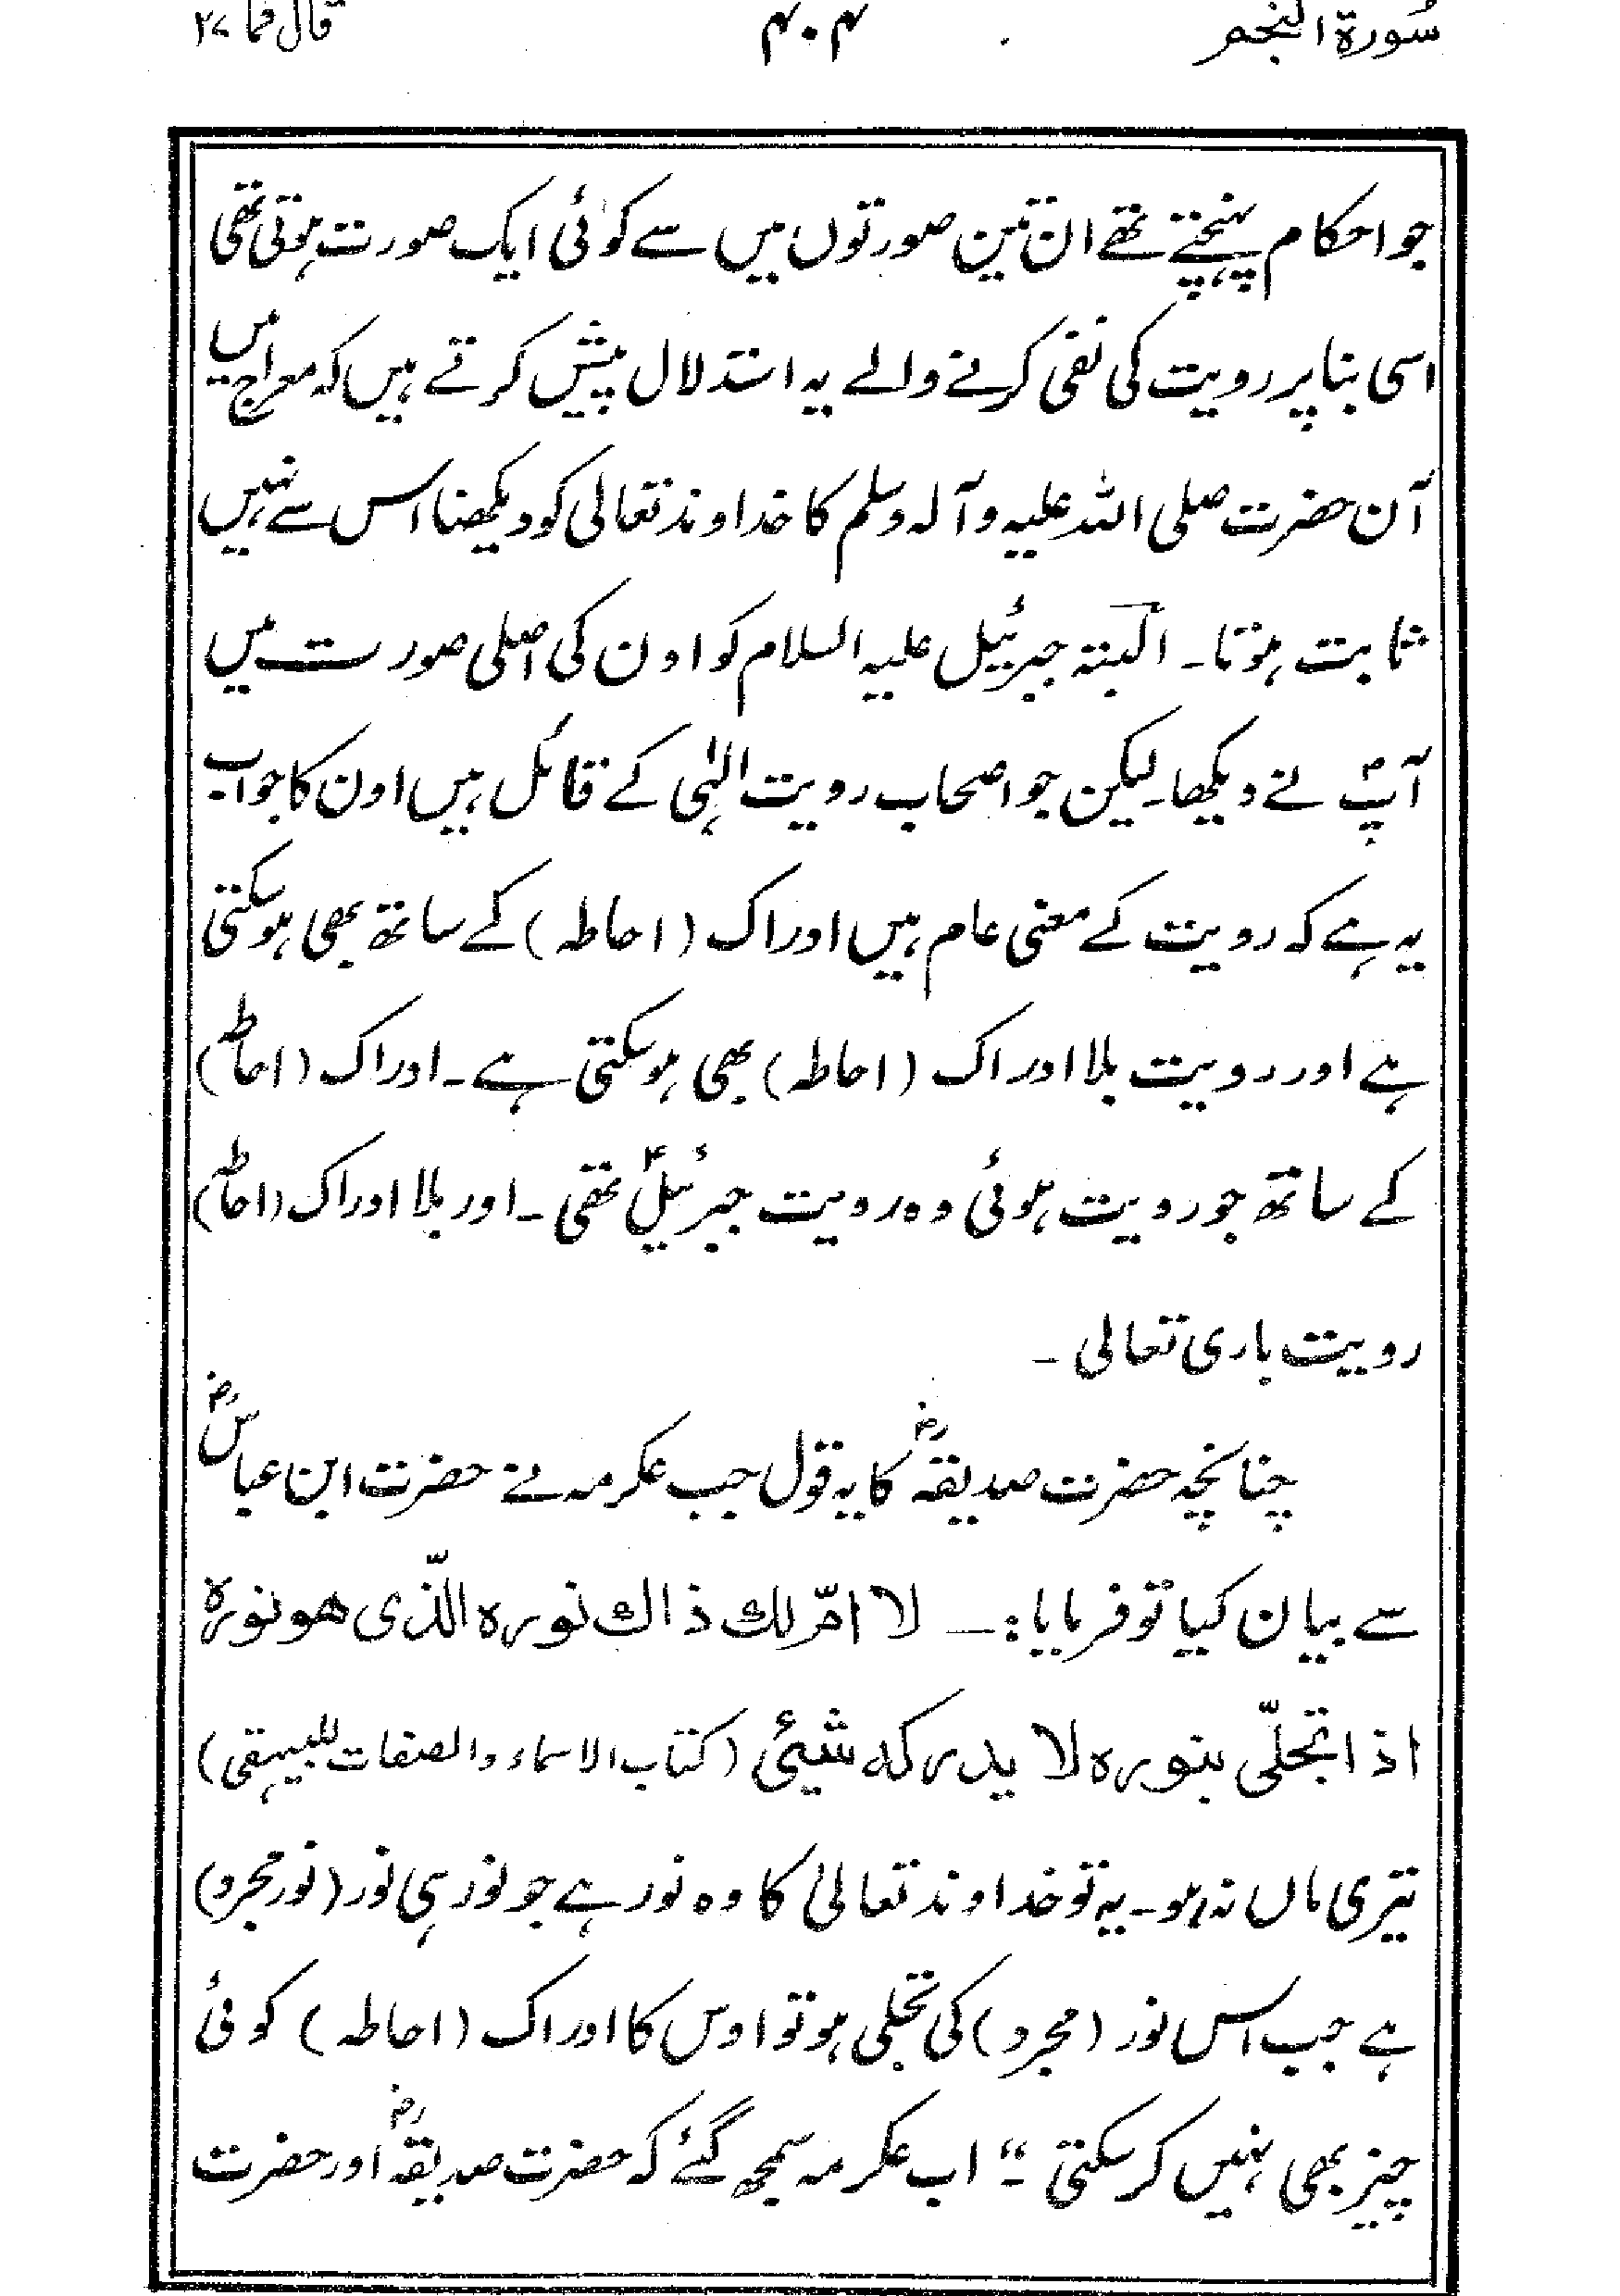 سُورة النجم ۴۰۴ قال فما ۲۷
جو احکام پہنچتے تھے ان تین صورتوں میں سے کوئی ایک صورت ہوتی تھی
اسی بنا پر رویت کی نفی کرنے والے یہ استدلال پیش کرتے ہیں کہ معراج میں
آن حضرت صلی اللہ علیہ وآلہ وسلم کا خداوند تعالی کو دیکھنا اس سے نہیں
ثابت ہوتا۔ البتہ جبرئیل علیہ السلام کو اون کی اصلی صورت میں
آپؐ نے دیکھا۔ لیکن جو اصحاب رویت الہٰی کے قائل ہیں اون کا جواب
یہ ہے کہ رویت کے معنی عام ہیں ادراک (احاطہ) کے ساتھ بھی ہوسکتی
ہے اور رویت بلا ادراک (احاطہ) بھی ہوسکتی ہے۔ ادراک (احاطہ)
کے ساتھ جو رویت ہوئی وہ رویت جبرئیلؑ تھی۔ اور بلا ادراک (احاطہ)
رویت باری تعالی۔
چنانچہ حضرت صدیقہؓ کا یہ قول جب عکرمہ نے حضرت ابن عباسؓ
سے بیان کیا تو فرمایا:۔ لا امّ لك ذاك نوره الّذی هو نوره
اذا تجلّی بنوره لا یدرکه شیئ (کتاب الاسماء والصفات للبیہقی)
تیری ماں نہ ہو۔ یہ تو خداوند تعالیٰ کا وہ نور ہے جو نور ہی نور (نور مجرد)
ہے جب اس نور (مجرد) کی تجلی ہو تو اوس کا ادراک (احاطہ) کوئی
چیز بھی نہیں کرسکتی۔“ اب عکرمہ سمجھ گئے کہ حضرت صدیقہؓ اور حضرت